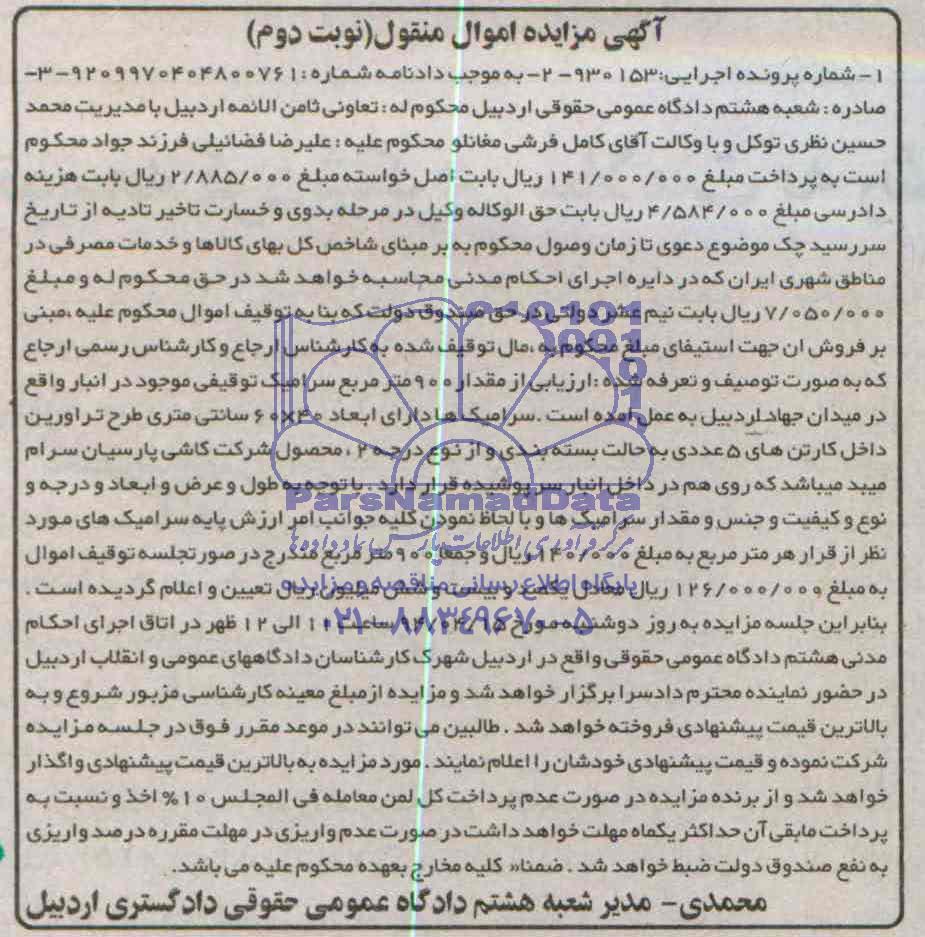 آگهی مزایده اموال منقول(نوبت دوم)
۱- شماره پرونده اجرایی:۹۳۰۱۵۳- ۲- به موجب دادنامه شماره: ۹۲۰۹۹۷۰۴۰۴۸۰۰۷۶۱-۳-
صادره : شعبه هشتم دادگاه عمومی حقوقی اردبیل محکوم له : تعاونی ثامن الائمه اردبیل با مدیریت محمد
حسین نظری توکل و با وکالت آقای کامل فرشی مغانلو محکوم علیه : علیرضا فضائیلی فرزند جواد محکوم
است به پرداخت مبلغ ۱۴۱/۰۰۰/۰۰۰ ریال بابت اصل خواسته مبلغ ۲/۸۸۵/۰۰۰ ریال بابت هزینه
دادرسی مبلغ ۴/۵۸۴/۰۰۰ ریال بابت حق الوکاله وکیل در مرحله بدوی و خسارت تاخیر تادیه از تاریخ
سررسید چک موضوع دعوی تا زمان وصول محکوم به بر مبنای شاخص کل بهای کالاها و خدمات مصرفی در
مناطق شهری ایران که در دایره اجرای احکام مدنی محاسبه خواهد شد در حق محکوم له و مبلغ
۷/۰۵۰/۰۰۰ ریال بابت نیم عشر دولتی در حق صندوق دولت که بنا به توقیف اموال محکوم علیه ،مبنی
بر فروش ان جهت استیفای مبلغ محکوم به ،مال توقیف شده به کارشناس ارجاع و کارشناس رسمی ارجاع
که به صورت توصیف و تعرفه شده :ارزیابی از مقدار ۹۰۰ متر مربع سرامیک توقیفی موجود در انبار واقع
در میدان جهاد اردبیل به عمل آمده است .سرامیک ها دارای ابعاد ۴۰×۶۰ سانتی متری طرح تراورین
داخل کارتن های ۵ عددی به حالت بسته بندی و از نوع درجه ۲ ، محصول شرکت کاشی پارسیان سرام
میبد میباشد که روی هم در داخل انبار سر پوشیده قرار دارد . با توجه به طول و عرض و ابعاد و درجه و
نوع و کیفیت و جنس و مقدار سرامیک ها و با لحاظ نمودن کلیه جوانب امر ارزش پایه سرامیک های مورد
نظر از قرار هر متر مربع به مبلغ ۱۴۰/۰۰۰ ریال و جمعا ۹۰۰ متر مربع مندرج در صورتجلسه توقیف اموال
به مبلغ ۱۲۶/۰۰۰/۰۰۰ ریال معادل یکصد و بیست و شش میلیون ریال تعیین و اعلام گردیده است .
بنابراین جلسه مزایده به روز دوشنبه مورخ ۹۴/۰۴/۱۵ ساعت ۱۱ الی ۱۲ ظهر در اتاق اجرای احکام
مدنی هشتم دادگاه عمومی حقوقی واقع در اردبیل شهرک کارشناسان دادگاههای عمومی و انقلاب اردبیل
در حضور نماینده محترم دادسرا برگزار خواهد شد و مزایده از مبلغ معینه کارشناسی مزبور شروع و به
بالاترین قیمت پیشنهادی فروخته خواهد شد . طالبین می توانند در موعد مقرر فوق در جلسه مزایده
شرکت نموده و قیمت پیشنهادی خودشان را اعلام نمایند . مورد مزایده به بالاترین قیمت پیشنهادی واگذار
خواهد شد و از برنده مزایده در صورت عدم پرداخت کل ثمن معامله فی المجلس ۱۰% اخذ و نسبت به
پرداخت مابقی آن حداکثر یکماه مهلت خواهد داشت در صورت عدم واریزی در مهلت مقرره درصد واریزی
به نفع صندوق دولت ضبط خواهد شد . ضمنا« کلیه مخارج بعهده محکوم علیه می باشد.
محمدی- مدیر شعبه هشتم دادگاه عمومی حقوقی دادگستری اردبیل
ParsNamadData
مرکز فرآوری اطلاعات پارس نماد داده ها
پایگاه اطلاع رسانی مناقصه و مزایده
۰۲۱-۸۸۳۴۹۶۷۰-۵